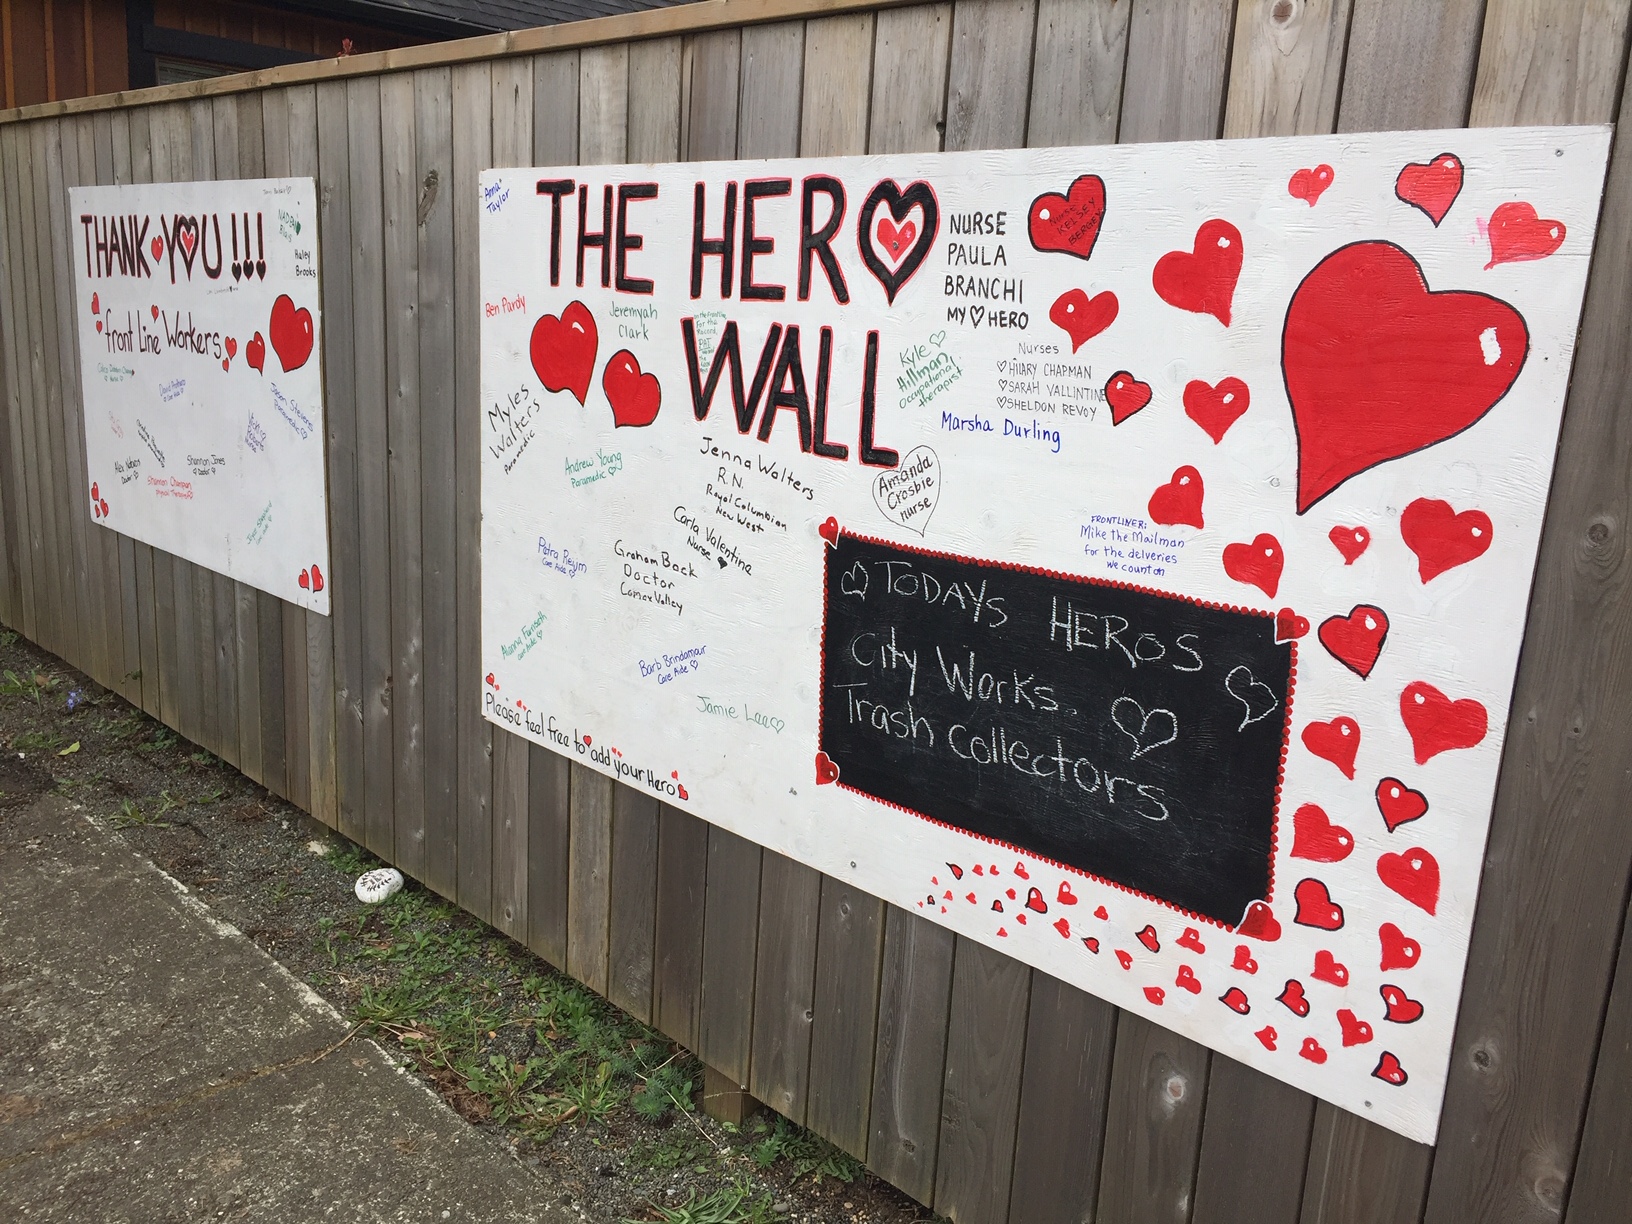 THANK YOU !!!
front Line Workers
NADENE
Haley
Brooks
Shannon Jones
Doctor
Alex Nelson
Doctor
Shannon Champion
Physical Therapist
Jason Stevens
Paramedic
Anna
Taylor
THE HERO
WALL
Ben Pardy
Jeremyah
Clark
NURSE
PAULA
BRANCHI
MY HERO
Nurse
KELSEY
BERGEY
Kyle
Hillman
Occupational
therapist
Nurses
HILARY CHAPMAN
SARAH VALLINTINE
SHELDON REVOY
Marsha Durling
Myles
Walters
Paramedic
Andrew Young
Paramedic
Jenna Walters
R.N.
Royal Columbian
New West
Amanda
Crosbie
nurse
Carla Valentine
Nurse
FRONTLINER:
Mike the Mailman
for the delveries
we count on
Petra Reijm
Care Aide
Graham Back
Doctor
Comox Valley
Alanna Forisseth
care aide
Barb Brindamour
Care Aide
Jamie Lee
Please feel free to add your Hero
TODAYS HEROS
City Works
Trash Collectors